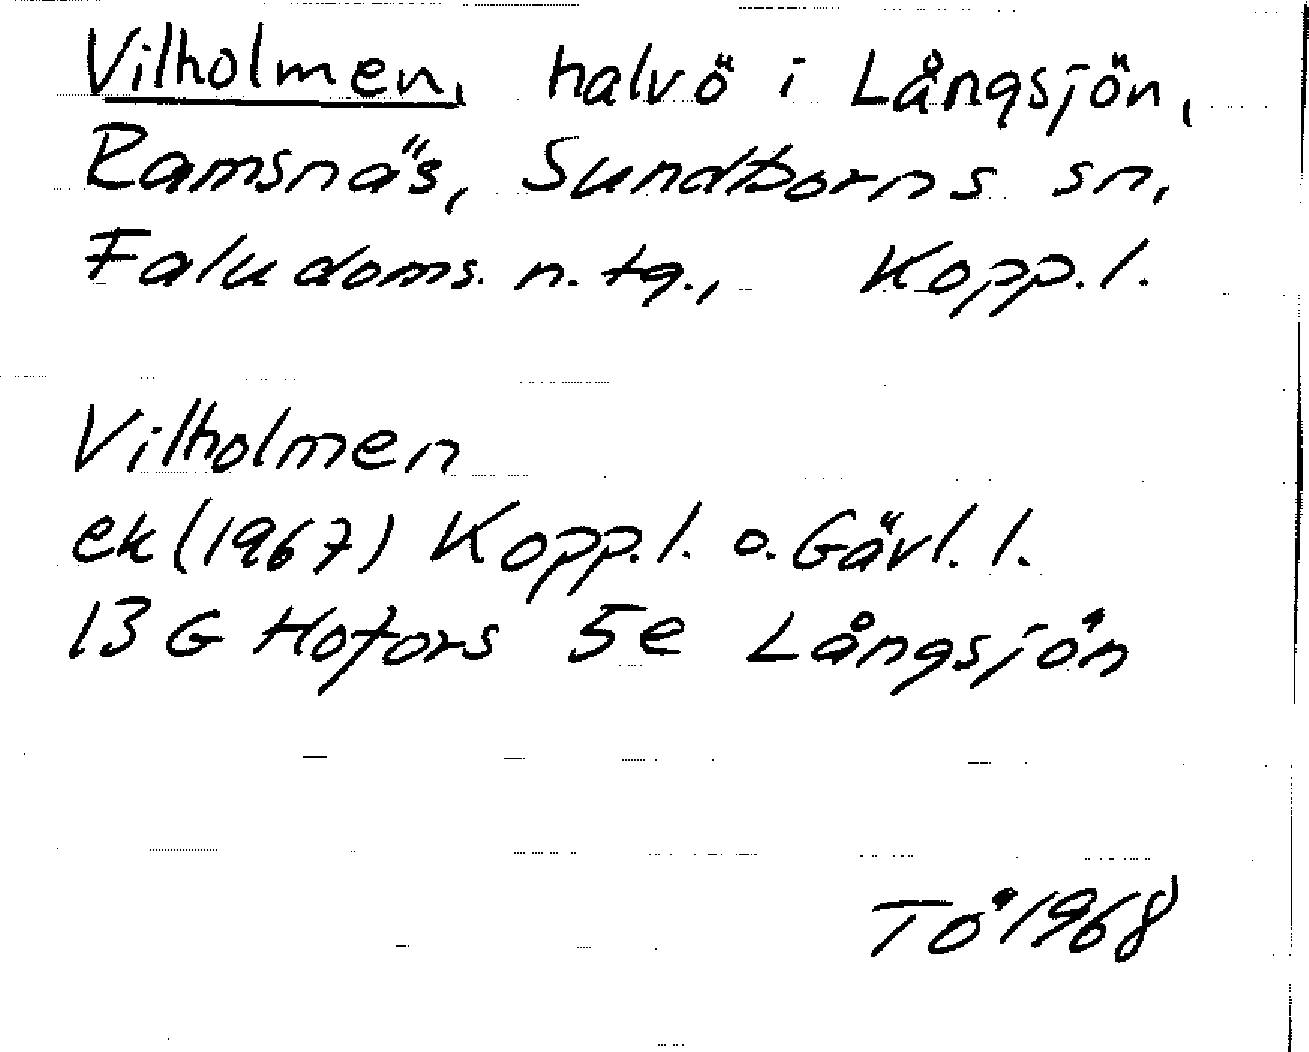 Vilholmen, halvö i Långsjön,
Ramsnäs, Sundborns sn,
Faludoms. n. tg., Kopp. l.
Vilholmen
ek (1967) Kopp. l. o. Gävl. l.
13 G Hofors 5e Långsjön
TÖ 1968